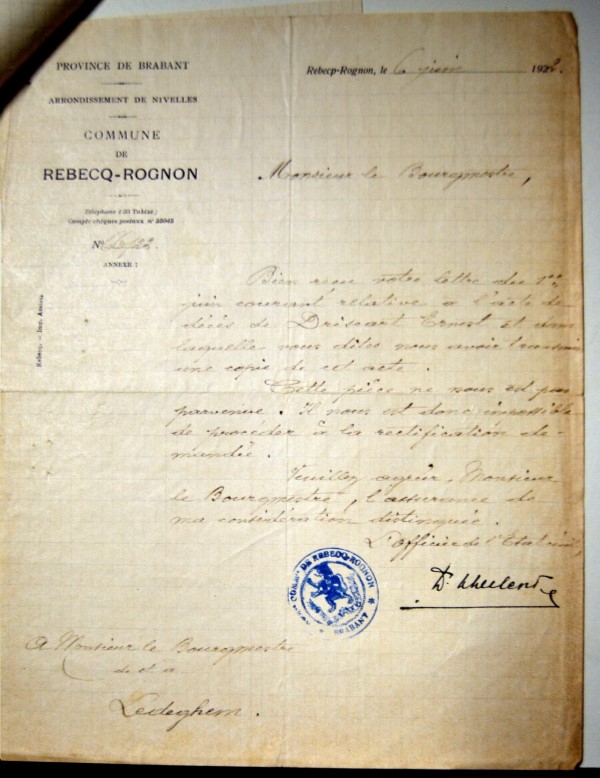 PROVINCE DE BRABANT
ARRONDISSEMENT DE NIVELLES
COMMUNE
DE
REBECQ-ROGNON
Téléphone (33 Tubize)
Compte chèques postaux n° 25043
N°
ANNEXE :
Rebecq. — Imp. Anciens
Rebecq-Rognon, le 6 juin 1922.
Monsieur le Bourgmestre,
Bien reçu votre lettre du 1er
juin courant relative à l'acte de
décès de Driscart Ernest et dans
laquelle vous dites nous avoir transmis
une copie de cet acte.
Cette pièce ne nous est pas
parvenue. Il nous est donc impossible
de procéder à la rectification de-
mandée.
Veuillez agréer, Monsieur
le Bourgmestre, l'assurance de
ma considération distinguée.
L'Officier de l'Etat civil,
COMMne DE REBECQ-ROGNON
BRABANT
A Monsieur le Bourgmestre
de et à
Ledeghem.